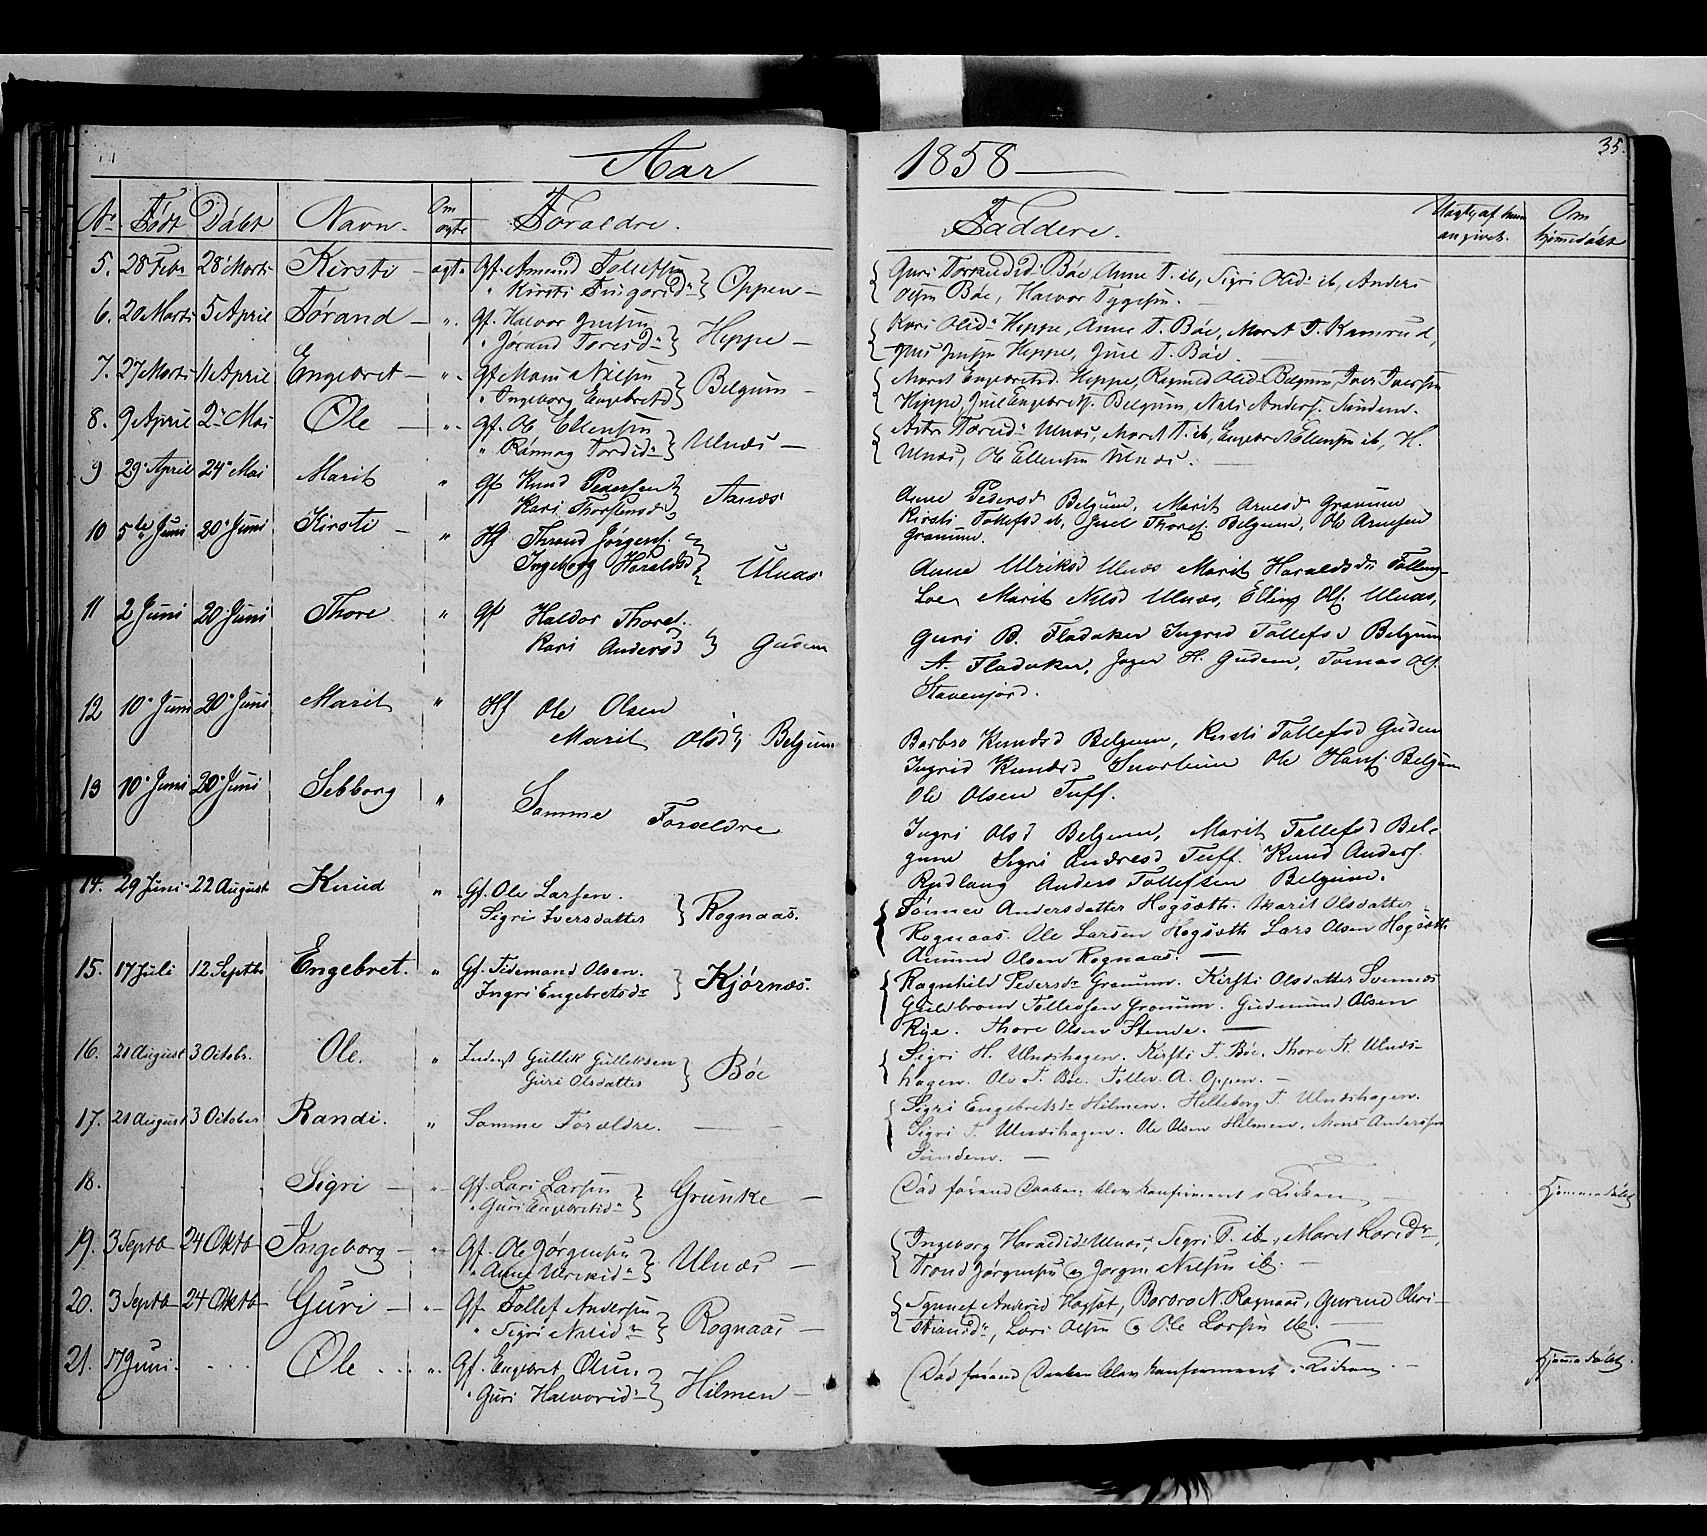 Aar 1858
35.
No. Født Døbt Navn. Om ægte Foraldre. Faddere. Om hjemmedøbt
5. 28 Febr 28 Marts Kirsti - ægte Gf. Amund Tollefsen
" Kirsti Tingorsd. } Oppen -
Guri Torkildsd. Bøe, Anne T. ib, Sigri Olsd. ib, Anders
Olsen Bøe, Halvor Tyggesen.
6. 20 Marts 5 April Jørand - " Gf. Halvor Juulsen
" Jørand Toresd. } Heppe -
Kari Olsd. Heppe, Anne T. Bøe, Marit T. Kamrud,
Heppe, Juul T. Bøe.
7. 27 Marts 11 April Engebret - " Gf. Mons Nilsen
" Ingeborg Engebretsd. } Belgum -
Marit Engebretsd. Heppe, Ragnild Olsd. Belgum, Iver Iversen
Heppe, Juul Engebretsen Belgum, Nils Anders. Sundem.
8. 9 April 2 Mai Ole - " Gf. Ole Ellensen
" Rønnag Tordsd. } Ulnæs -
Ulnæs, Marit T. ib, Engebret Ellensen ib, H.
Ulnæs, Ole Ellensen Ulnæs.
9 29 April 24 Mai Marit " Gf Knud Pedersen
Kari Thorstensd } Aanæs
Anne Pedersd Belgum, Marit Arnesd Granum
Kirsti Tollefsd ib, Juul Thoresen Belgum, Ole Arnesen
Granum.
10 5te Juni 20 Juni Kirsti - " Hf Thrond Jørgens.
Ingeborg Haraldsd } Ulnæs
Anne Ulriksd Ulnæs Marit Haraldsd
Loe, Marit Nilsd Ulnæs, Elling Ols. Ulnæs,
11 2 Juni 20 Juni Thore " Gf Haldor Thores.
Kari Andersd } Gudem
Guri B. Fladaker Ingrid Tollefsd Belgum
A. Fladaker, H. Gudem, Tomas Ols.
Stavenjord.
12 10 Juni 20 Juni Marit " Hf Ole Olsen
Marit Olsd } Belgum
Barbro Knudsd Belgum, Kirsti Tollefsd Gudem
Ingrid Knudsd Ole Hans. Belgum
Ole Olsen Tuff.
13 10 Juni 20 Juni Sebborg " Samme Foræeldre
Ingri Olsd Belgum, Marit Tollefsd Bel-
gum Sigri Andresd Tuff. Knud Anders.
Rudlang Anders Tollefsen Belgum.
14. 29 Juni 22 August Knud " Gf. Ole Larsen.
Sigri Iversdatter } Rognaas.
Andersdatter Høgsæth. Marit Olsdatter
Rognaas. Ole Larsen Høgsæth Lars Olsen Høgsæth
Amund Olsen Rognaas. -
15. 17 Juli 12 Septbr Engebret. " Gf. Tidemand Olsen.
Ingri Engebretsdr } Kjørnæs.
Ragnhild Pedersdr Granum. Kirsti Olsdatter Svennæs
Guldbrand Tollefsen Granum. Gudmund Olsen
Rye. Thore Olsen Stende. -
16. 21 August 3 Octobr. Ole. " Inderst Gullik Gulliksen
Guri Olsdatter } Bøe
Sigri H. Ulnæshagen. Kirsti T. Bøe. Thore K. Ulnæs-
hagen. Ole T. Bøe. Tollev A. Oppen. -
17. 21 August 3 October Randi. " Samme Forældre.
Sigri Engebretsdr Hilmen. Helleborg T Ulnæshagen.
Sigri T. Ulnæshagen. Ole Olsen Hilmen. Mons Andersen
Sundem. -
18. Sigri - " Gf. Lars Larsen
" Guri Engebretsd. } Grunke -
(Død førend Daaben blev konfirmeret i Kirken Hjemmedøbt
19. 3 Septb 24 Oktb Ingeborg - " Gf. Ole Jørgensen
" Anne Ulriksd. } Ulnæs -
Ingeborg Haraldsd. Ulnæs, Sigri T. ib, Marit
Trond Jørgensen & Jørgen Nilsen ib. -
20. 3 Septb 24 Oktb Guri - " Gf. Tollef Andersen
" Sigri Nilsd. } Rognaas -
Synnef Andersd Høgsæt, Barbro N. Rognaas, Gurine Chri-
stiansdr, Lars Olsen & Ole Larsen ib. -
21. 17 Juni. Ole " Gf. Engebret Olsen.
" Guri Halvorsd. } Hilmen -
(Død førend Daaben blev konfirmeret i Kirken - Hjemmedøbt.